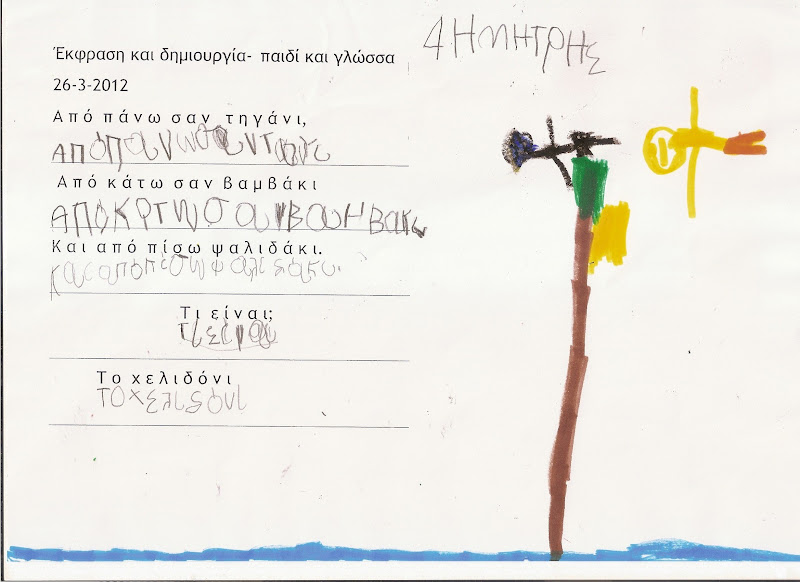 Έκφραση και δημιουργία- παιδί και γλώσσα
4ΗΜΗΤΡΗΣ
26-3-2012
Από πάνω σαν τηγάνι,
ΑΠΟΠαΝω σαν Τηγανι
Από κάτω σαν βαμβάκι
ΑΠΟΚΡΤΗσαΝΒαΜΒακι
Και από πίσω ψαλιδάκι.
και αποπισωψαλιδακι.
Τι είναι;
τιειναι
Το χελιδόνι
ΤΟχελιδονι